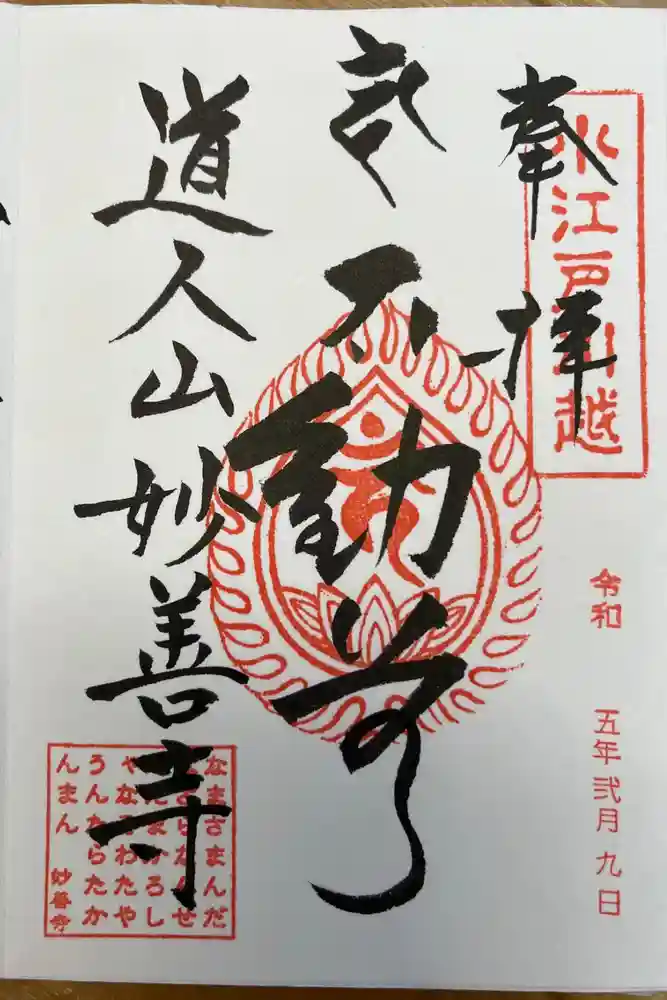 奉拝
小江戸川越
不動尊
道人山妙善寺
令和 五年弐月九日
なまさまんだ
ばさらなんせ
んだまかろし
ゃなそわたや
うんたらたか
んまん 妙善寺